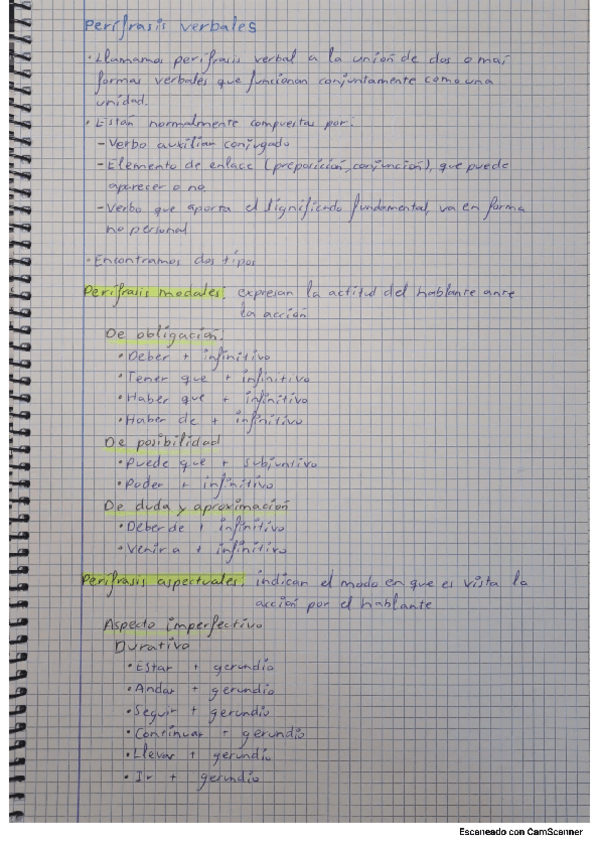 Perífrasis verbales
· Llamamos perífrasis verbal a la unión de dos o más
formas verbales que funcionan conjuntamente como una
unidad.
· Están normalmente compuestas por:
- Verbo auxiliar conjugado
- Elemento de enlace (preposición, conjunción), que puede
aparecer o no
- Verbo que aporta el significado fundamental, va en forma
no personal
· Encontramos dos tipos
Perífrasis modales: expresan la actitud del hablante ante
la acción
De obligación:
· Deber + infinitivo
· Tener que + infinitivo
· Haber que + infinitivo
· Haber de + infinitivo
De posibilidad
· Puede que + subjuntivo
· Poder + infinitivo
De duda y aproximación
· Deber de + infinitivo
· Venir a + infinitivo
Perífrasis aspectuales: indican el modo en que es vista la
acción por el hablante
Aspecto imperfectivo
Durativo
· Estar + gerundio
· Andar + gerundio
· Seguir + gerundio
· Continuar + gerundio
· Llevar + gerundio
· Ir + gerundio
Escaneado con CamScanner